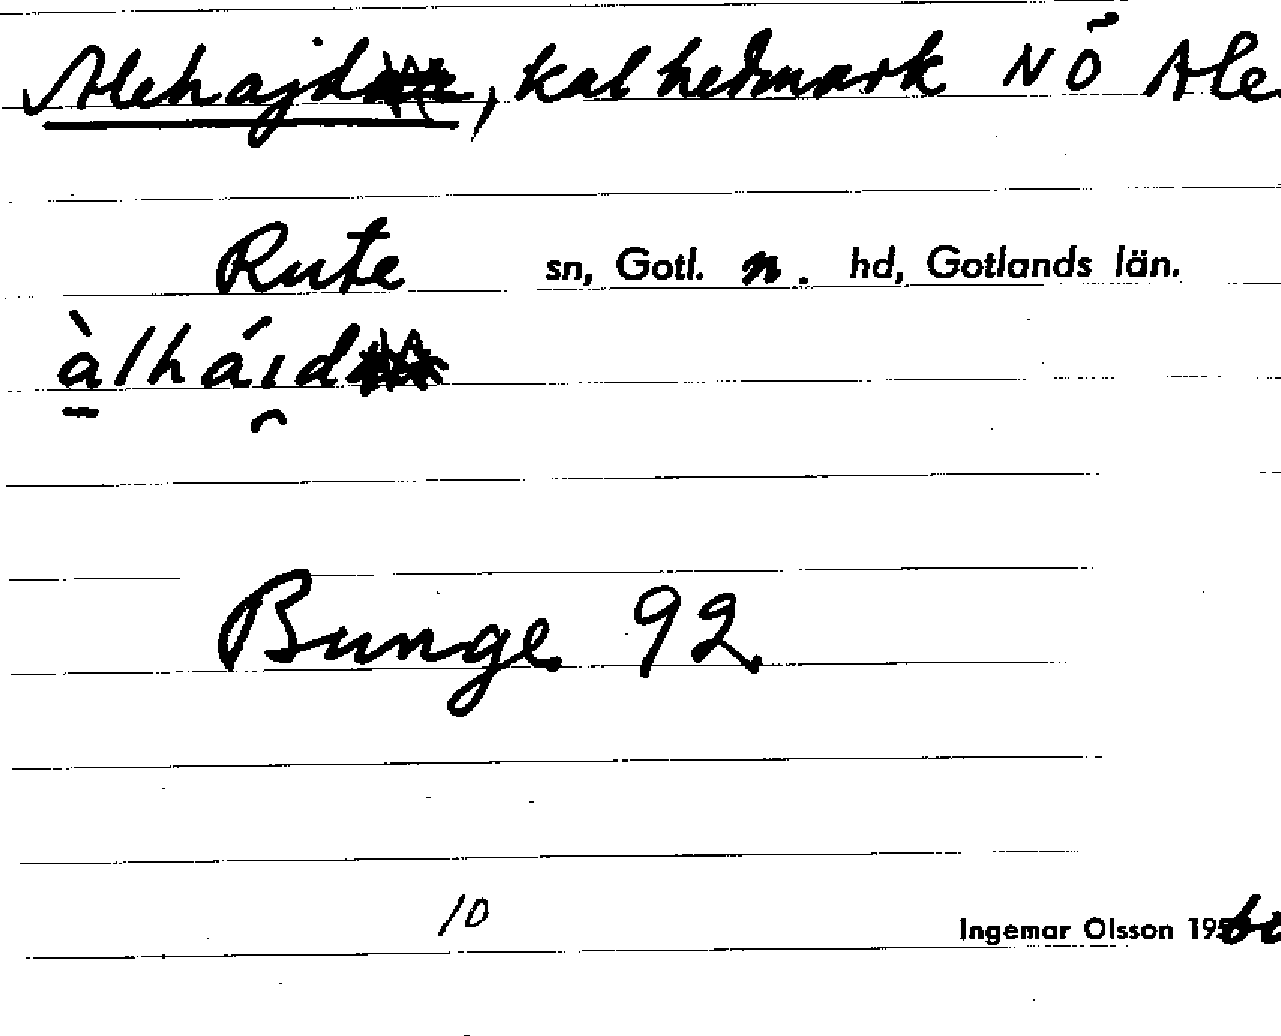 Alehajd, kal hedmark NÖ Ale
Rute sn, Gotl. n. hd, Gotlands län.
àlháıd
Bunge 92
10
Ingemar Olsson 19